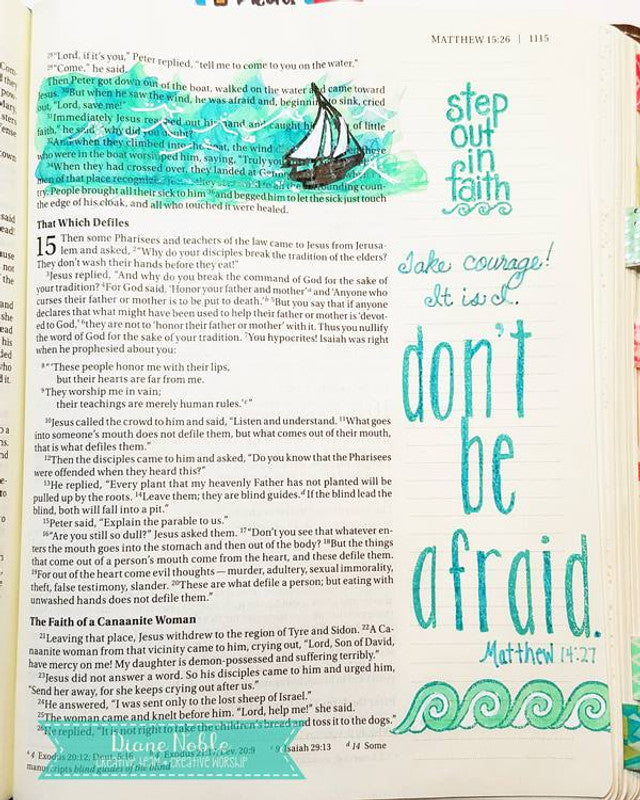 MATTHEW 15:26 | 1115
28“Lord, if it’s you,” Peter replied, “tell me to come to you on the water.”
29“Come,” he said.
Then Peter got down out of the boat, walked on the water and came toward
Jesus. 30But when he saw the wind, he was afraid and, beginning to sink, cried
out, “Lord, save me!”
31Immediately Jesus reached out his hand and caught of little
faith,” he said, “why did you doubt?”
32And when they climbed into the boat, the wind there
who were in the boat worshiped him, saying, “Truly you
34When they had crossed over, they landed at Genn when
men of that place recognized Jesus, they sent word to all the surrounding coun-
try. People brought all their sick to him 36and begged him to let the sick just touch
the edge of his cloak, and all who touched it were healed.
That Which Defiles
15 Then some Pharisees and teachers of the law came to Jesus from Jerusa-
lem and asked, 2“Why do your disciples break the tradition of the elders?
They don’t wash their hands before they eat!”
3Jesus replied, “And why do you break the command of God for the sake of
your tradition? 4For God said, ‘Honor your father and mother’a and ‘Anyone who
curses their father or mother is to be put to death.’b 5But you say that if anyone
declares that what might have been used to help their father or mother is ‘devot-
ed to God,’ 6they are not to ‘honor their father or mother’ with it. Thus you nullify
the word of God for the sake of your tradition. 7You hypocrites! Isaiah was right
when he prophesied about you:
8“ ‘These people honor me with their lips,
but their hearts are far from me.
9They worship me in vain;
their teachings are merely human rules.’c”
10Jesus called the crowd to him and said, “Listen and understand. 11What goes
into someone’s mouth does not defile them, but what comes out of their mouth,
that is what defiles them.”
12Then the disciples came to him and asked, “Do you know that the Pharisees
were offended when they heard this?”
13He replied, “Every plant that my heavenly Father has not planted will be
pulled up by the roots. 14Leave them; they are blind guides.d If the blind lead the
blind, both will fall into a pit.”
15Peter said, “Explain the parable to us.”
16“Are you still so dull?” Jesus asked them. 17“Don’t you see that whatever en-
ters the mouth goes into the stomach and then out of the body? 18But the things
that come out of a person’s mouth come from the heart, and these defile them.
19For out of the heart come evil thoughts — murder, adultery, sexual immorality,
theft, false testimony, slander. 20These are what defile a person; but eating with
unwashed hands does not defile them.”
The Faith of a Canaanite Woman
21Leaving that place, Jesus withdrew to the region of Tyre and Sidon. 22A Ca-
naanite woman from that vicinity came to him, crying out, “Lord, Son of David,
have mercy on me! My daughter is demon-possessed and suffering terribly.”
23Jesus did not answer a word. So his disciples came to him and urged him,
“Send her away, for she keeps crying out after us.”
24He answered, “I was sent only to the lost sheep of Israel.”
25The woman came and knelt before him. “Lord, help me!” she said.
26He replied, “It is not right to take the children’s bread and toss it to the dogs.”
a 4 Exodus 20:12; Deut. 5:16 b 4 Exodus 21:17; Lev. 20:9 c 9 Isaiah 29:13 d 14 Some
manuscripts blind guides of the blind
step
out
in
faith
Take courage!
It is I.
don't
be
afraid.
Matthew 14:27
Diane Noble
CREATIVE TEAM • CREATIVE WORSHIP